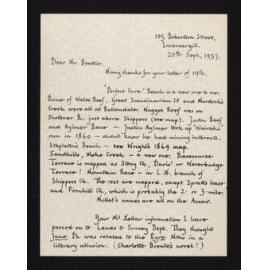 105 Robertson Street,
Invercargill.
20th Sept, 1957.
Dear Mr. Beattie,
Many thanks for your letter of 19th.
'Perfect Cure' Beach is a new one to me;
Prince of Wales Reef, Great Scandinavian Ck and Murdoch's
Creek were all at Ballendale. Nugget Reef was on
Skippers Ck. just above Skippers (see map). Justin Reef
and Aylmer Race — Justin Aylmer took up Wairaki
run in 1860 — didn't know he had mining interests.
Stapleton's Beach — see Wright's 1864 map.
Sandhills, Moke Creek — a new one; Pleasant
Terrace is mapped as Stony Ck, Davis' or
Terrace! Mountain Race — in L. ½ branch of
Skippers Ck. The rest are mapped, except lease
and Fernhill Ck, which is probably the 2- or 3-mile.
Millet's names are all on the Arrow.
Your Mr. Kellar information I have
passed on to Lands & Survey Dept. They thought
Jane Ck was related to the Eyre Mtns in a
literary allusion. (Charlotte Bronte's novel!)